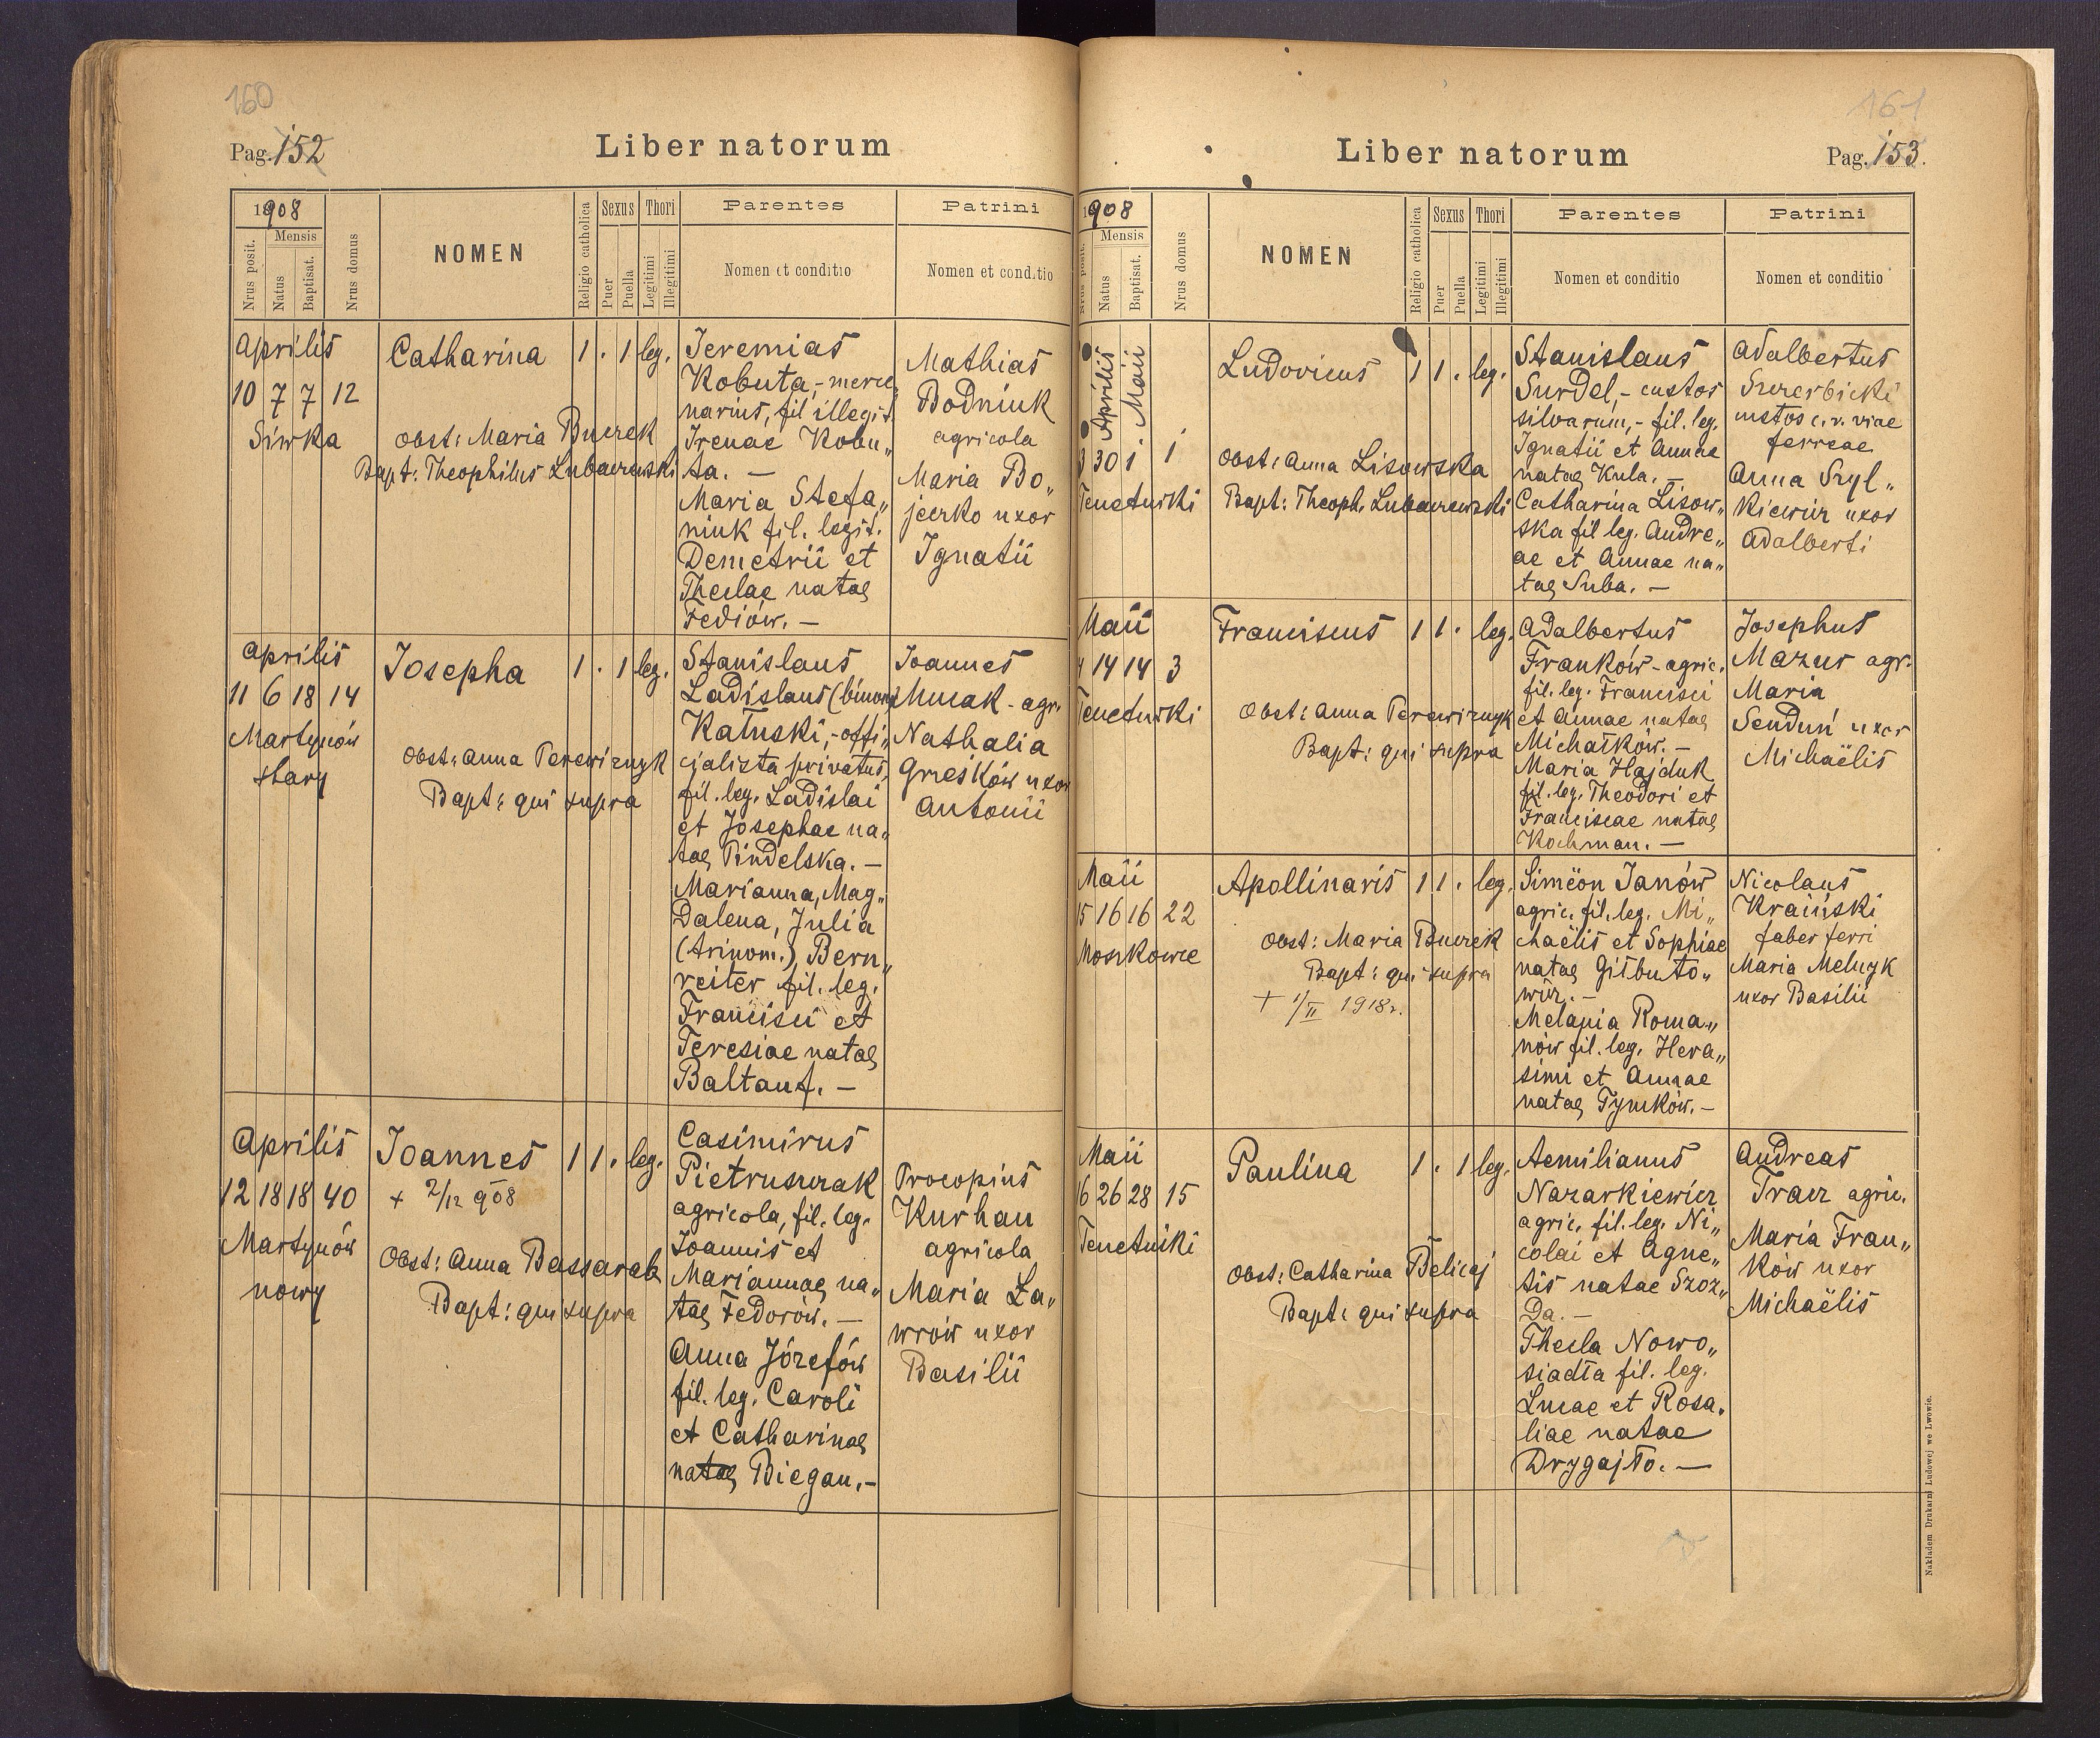 160
Pag. 152
Liber natorum
1908
Mensis
Nrus posit.
Natus
Baptisat.
Nrus domus
NOMEN
Religio catholica
Sexus
Puer
Puella
Thori
Legitimi
Illegitimi
Parentes
Nomen et conditio
Patrini
Nomen et conditio
Aprilis
10 7 7 12
Siwka
Catharina 1 . 1 leg.
Obst: Maria Burek
Bapt: Theophilus Lubaczewski
Jeremias
Kobuta,- merce„
narius, fil illegit.
Irenae Kobu„
ta. —
Maria Stefa„
niuk fil. legit.
Demetrii et
Theclae natae
Fediów. —
Mathias
Bodniuk
agricola
Maria Bo„
jeczko uxor
Ignatii
Aprilis
11 6 18 14
Martynów
stary
Josepha 1 . 1 leg.
Obst: Anna Perewiznyk
Bapt: qui supra
Stanislaus
Ladislaus (binom)
Katuski,- offi„
cjalista privatus,
fil. leg. Ladislai
et Josephae na„
tae Pindelska. —
Marianna, Mag„
dalena, Julia
(trinom.), Bern„
reiter fil. leg.
Francisci et
Teresiae natae
Baltauf. —
Joannes
Musak - agr.
Nathalia
Grześków uxor
Antonii
Aprilis
12 18 18 40
Martynów
nowy
Joannes 1 1 . leg.
+ 2/12 908
Obst: Anna Bassarab
Bapt: qui supra
Casimirus
Pietruszczak
agricola, fil. leg.
Joannis et
Mariannae na„
tae Fedorów. —
Anna Józefów
fil. leg. Caroli
et Catharinae
natae Biegan. —
Procopius
Kurhan
agricola
Maria Ła„
wrów uxor
Basilii
161
Liber natorum
Pag. 153.
1908
Mensis
Nrus posit.
Natus
Baptisat.
Nrus domus
NOMEN
Religio catholica
Sexus
Puer
Puella
Thori
Legitimi
Illegitimi
Parentes
Nomen et conditio
Patrini
Nomen et conditio
Aprilis
Maii
3 30 1 1
Tenetniki
Ludovicus 1 1 . leg.
Obst: Anna Lisowska
Bapt: Theoph. Lubaczewski
Stanislaus
Surdel,- custos
silvarum,- fil. leg.
Ignatii et Annae
natae Kula. —
Catharina Lisow„
ska fil leg. Andre„
ae et Annae na„
tae Suba. —
Adalbertus
Szczerbicki
custos c. r. viae
ferreae
Anna Szyl„
kiewicz uxor
Adalberti
Maii
4 14 14 3
Tenetniki
Franciscus 1 1 . leg.
Obst: Anna Perewiznyk
Bapt: qui supra
Adalbertus
Franków - agric.
fil. leg. Francisci
et Annae natae
Michałków. —
Maria Hajduk
fil. leg. Theodori et
Franciscae natae
Kochman. —
Josephus
Mazur agr.
Maria
Senduń uxor
Michaëlis
Maii
15 16 16 22
Moszkowce
Apollinaris 1 1 . leg.
Obst: Maria Burek
Bapt: qui supra
+ 1/II 1918 r.
Simeon Janów
agric. fil. leg. Mi„
chaëlis et Sophiae
natae Giłbuto„
wicz. —
Melania Roma„
nów fil. leg. Hera„
simi et Annae
natae Tymków. —
Nicolaus
Kraiński
faber ferri
Maria Melnyk
uxor Basilii
Maii
16 26 28 15
Tenetniki
Paulina 1 . 1 leg.
Obst: Catharina Belicaj
Bapt: qui supra
Aemilianus
Nazarkiewicz
agric. fil. leg. Ni„
colai et Agne„
tis natae Szoz„
da. —
Thecla Nowo„
siadła fil. leg.
Lucae et Rosa„
liae natae
Drygajło. —
Andreas
Tracz agric.
Maria Fran„
ków uxor
Michaëlis
Nakładem Drukarni Ludowej we Lwowie.